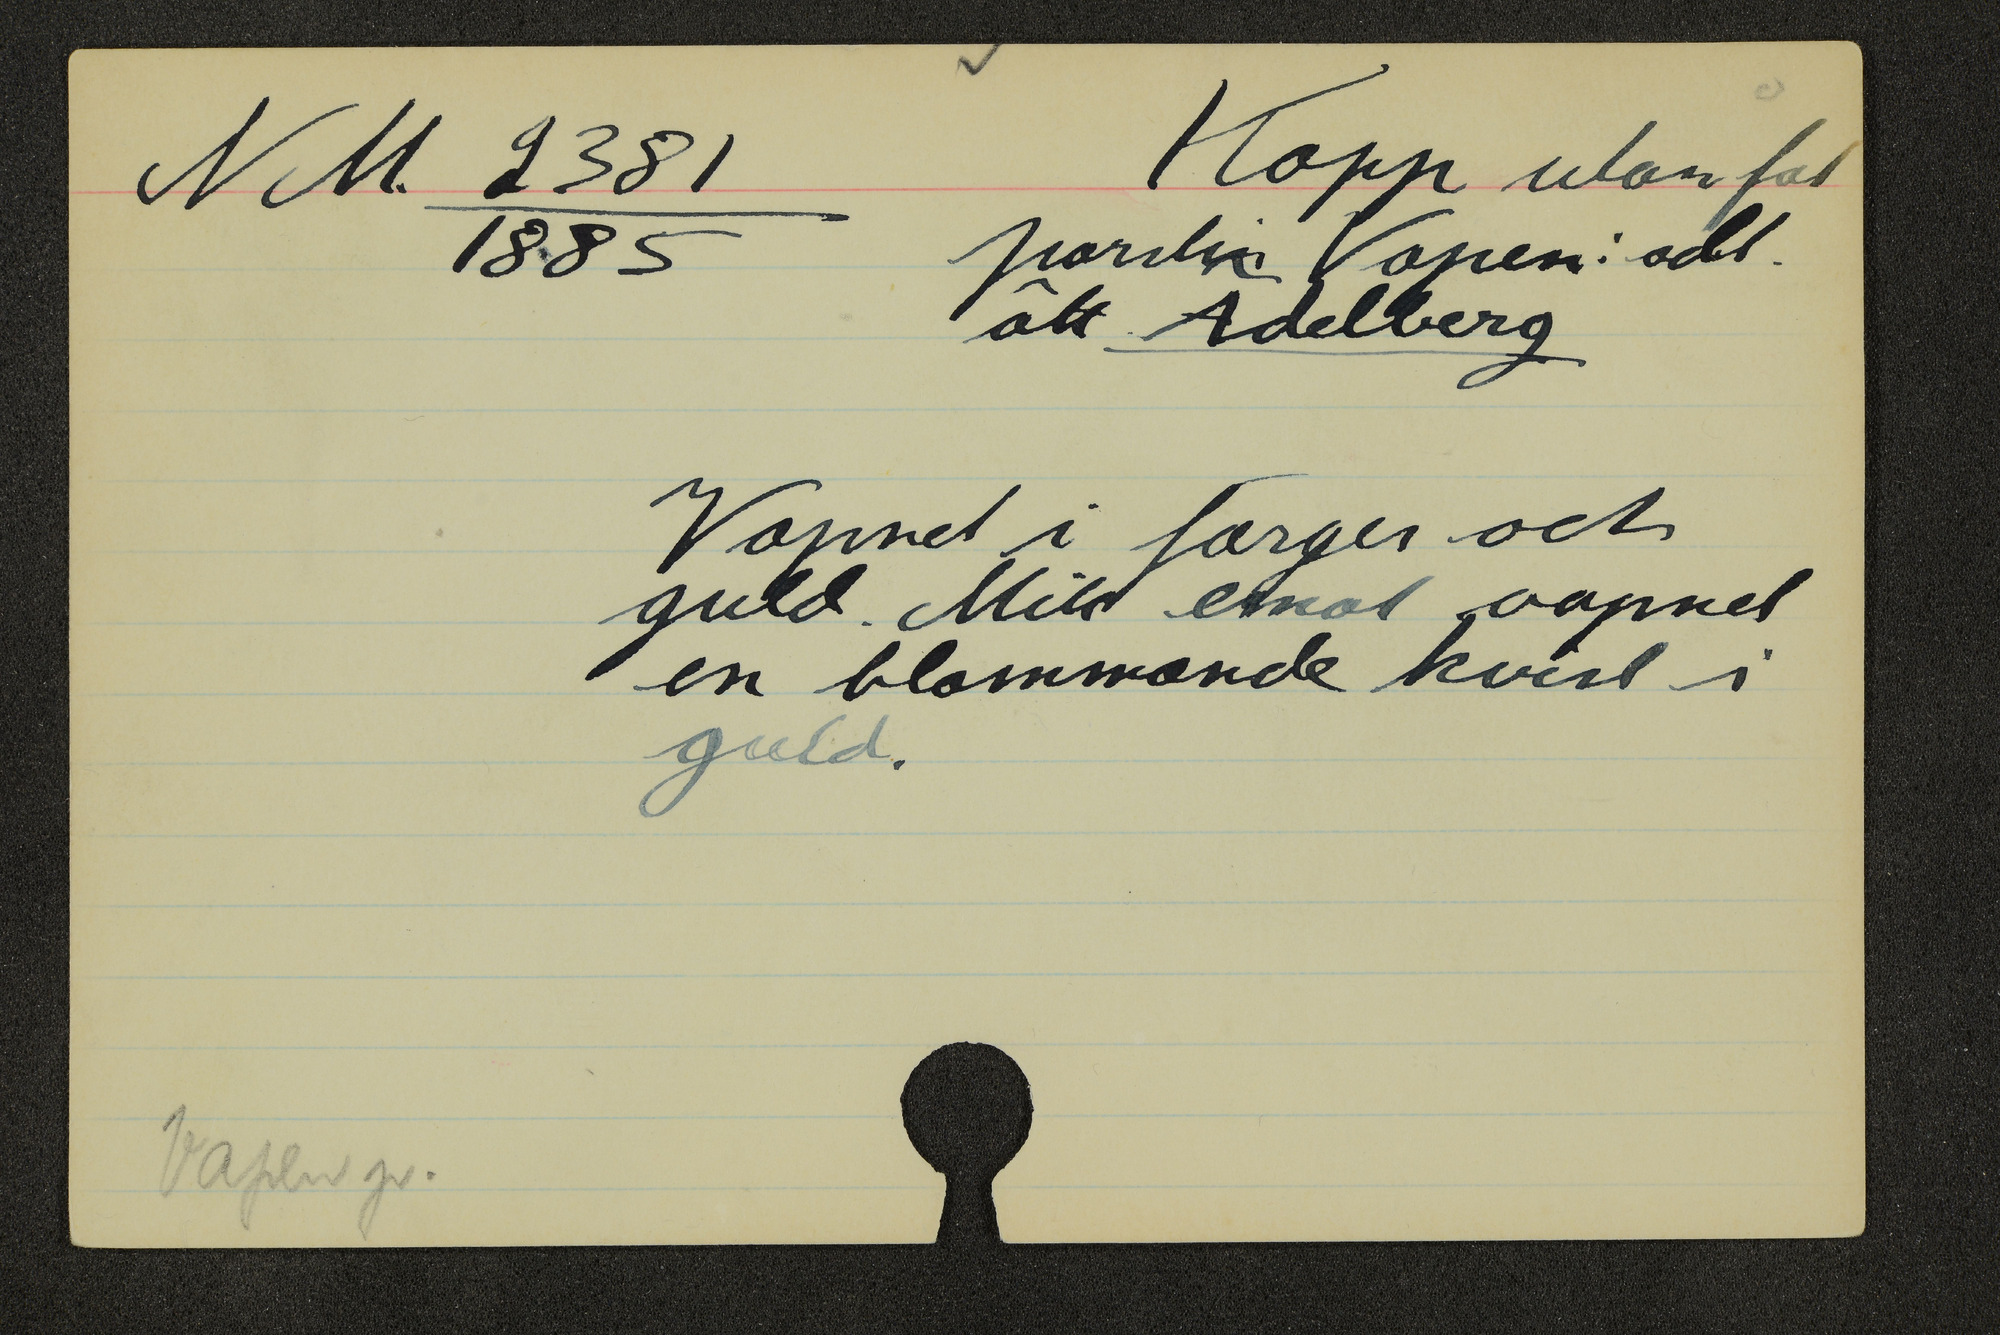 N M. 2381
1885
Kopp utan fat
porslin Vapen: adl.
ätt Adelberg
Vapnet i färger och
guld. Mitt emot vapnet
en blommande kvist i
guld.
Vapen